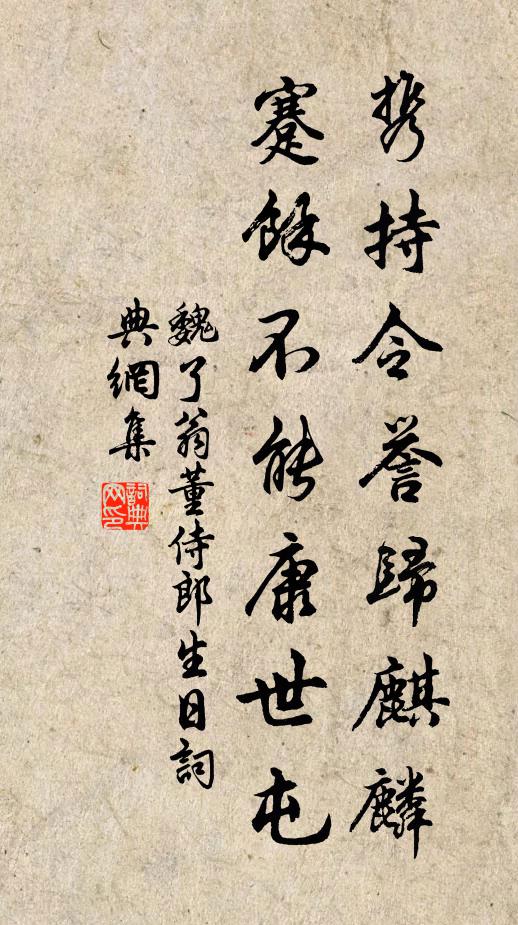 携持令誉歸麒麟
蹇餘不能康世屯
魏了翁董侍郎生日詞
典網集
詞典
网印